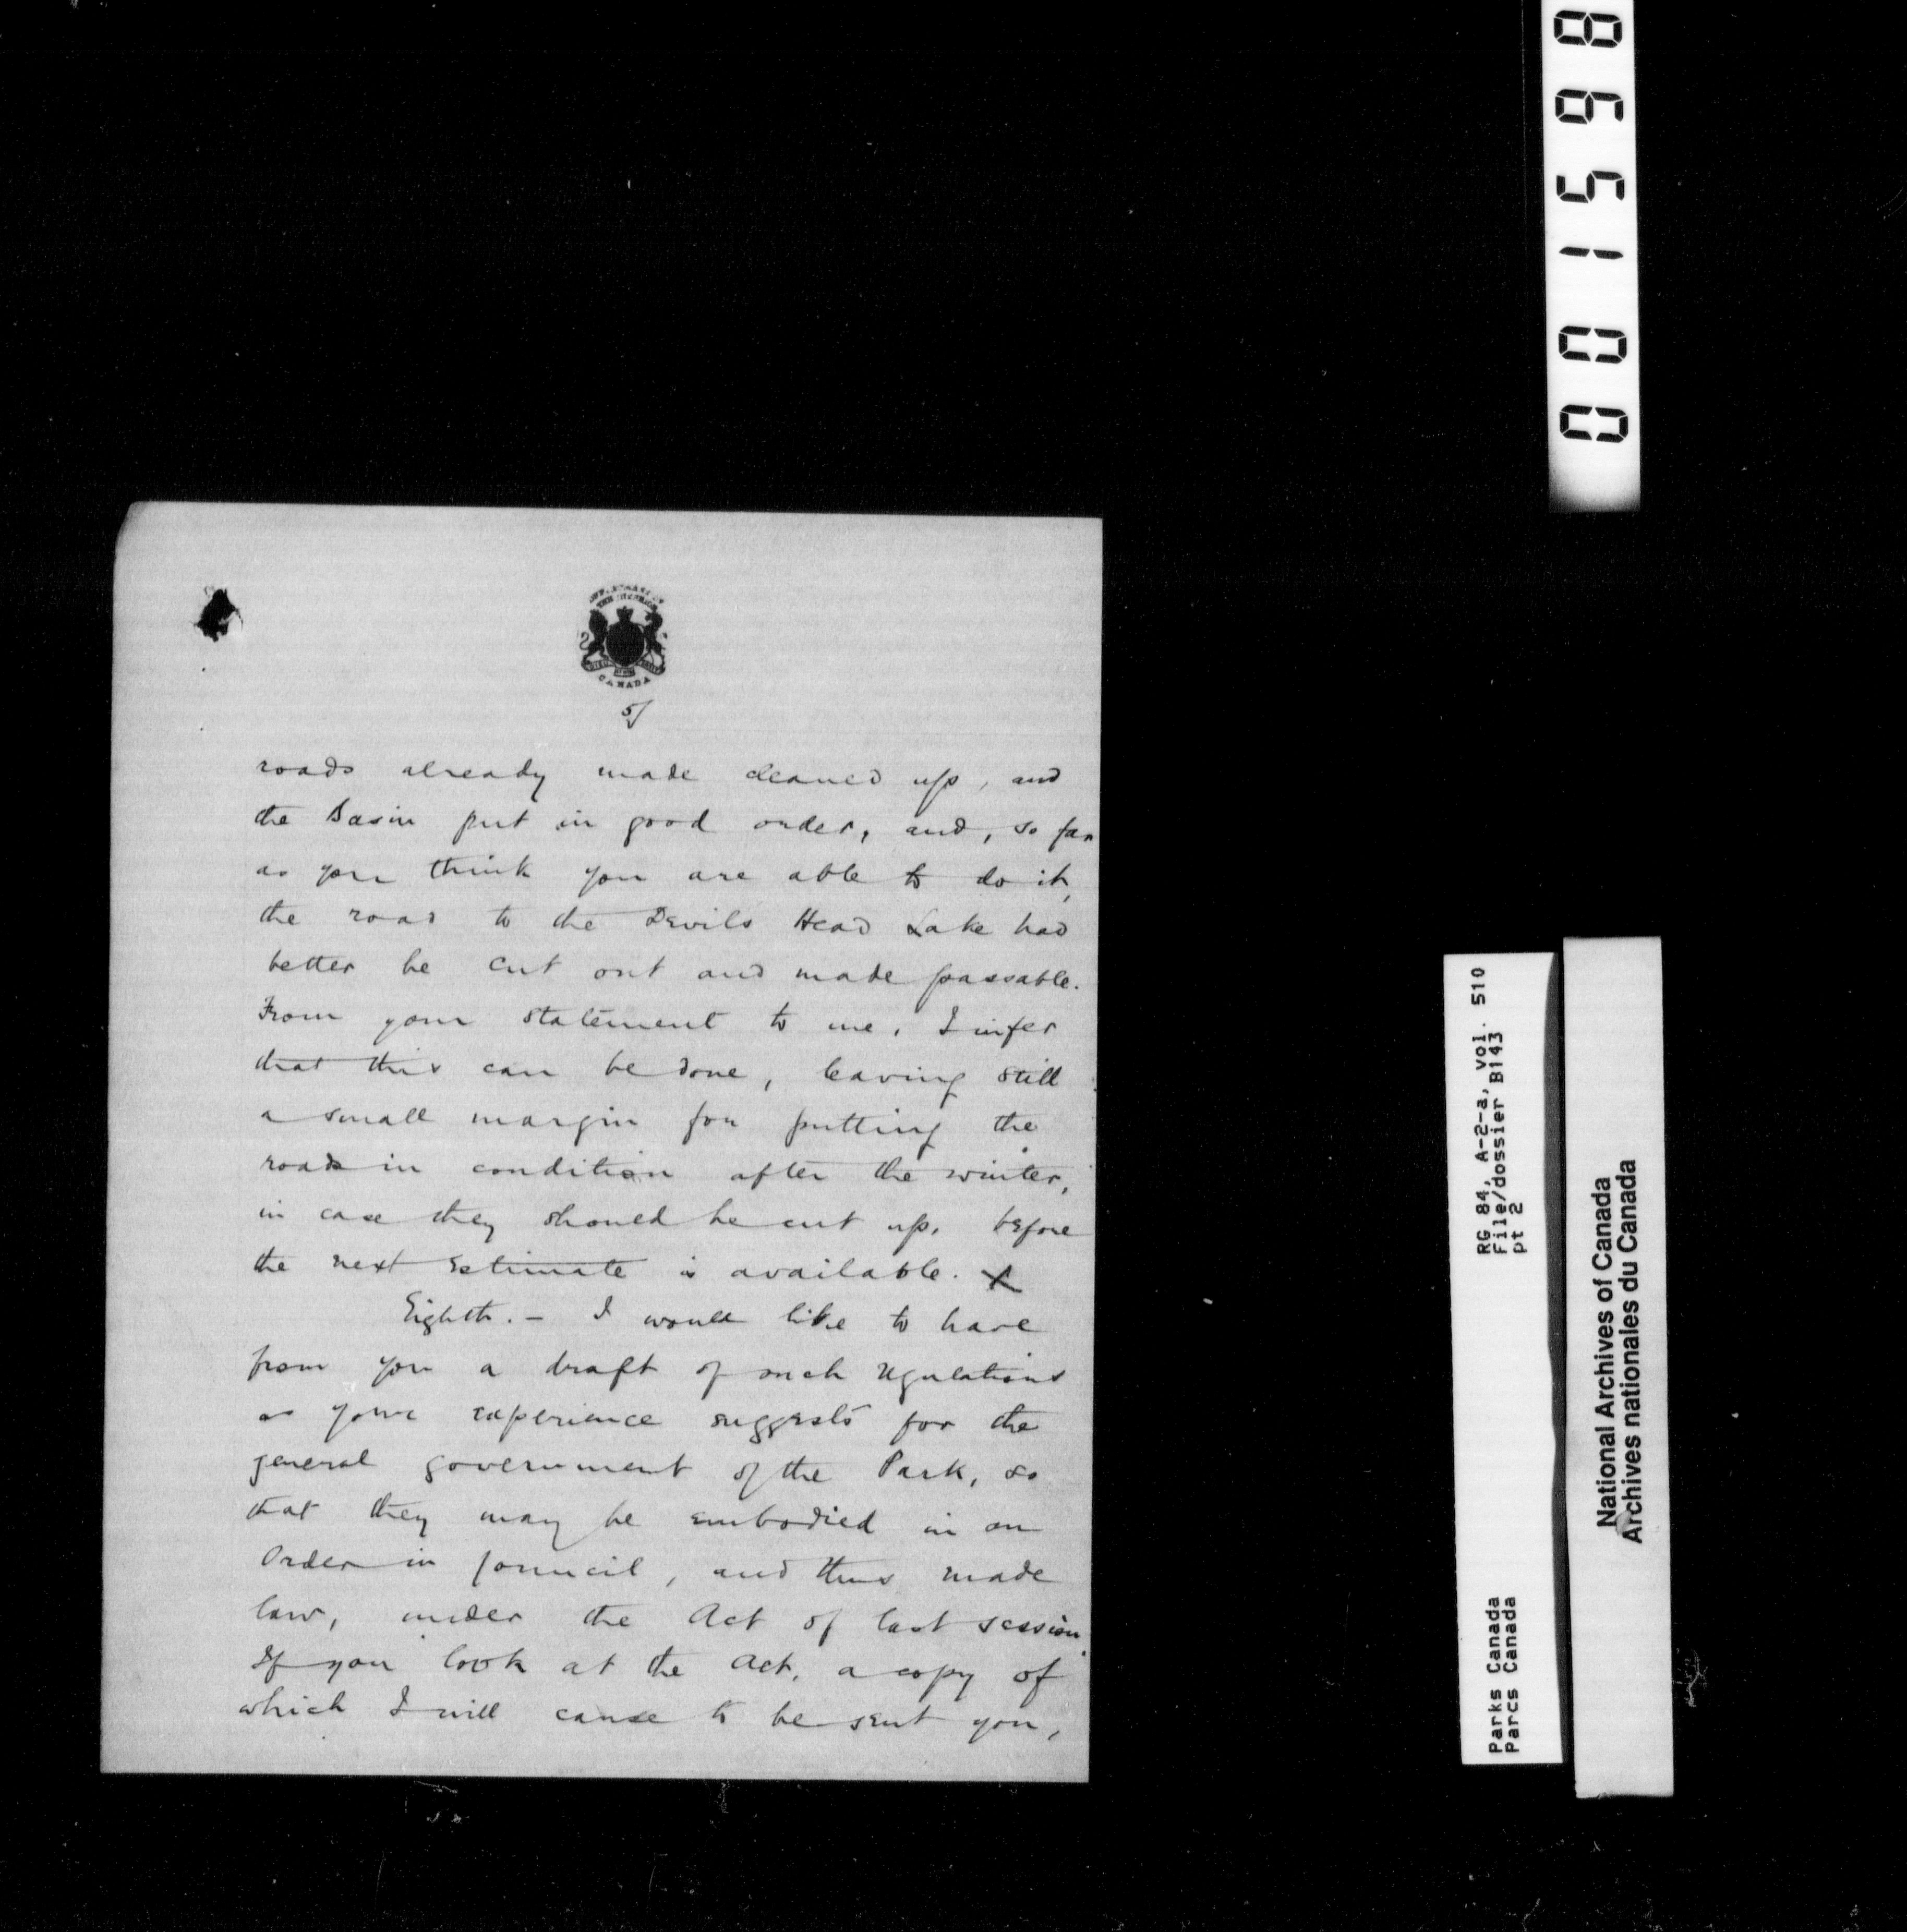 001598
THE INTERIOR
CANADA
5/
roads already made cleaned up, and
the Basin put in good order, and, so far
as you think you are able to do it,
the road to the Devils Head Lake had
better be cut out and made passable.
From your statement to me, I infer
that this can be done, leaving still
a small margin for putting the
roads in condition after the winter,
in case they should be cut up, before
the next Estimate is available. X
Eighth. - I would like to have
from you a draft of such regulations
as your experience suggests for the
general government of the Park, so
that they may be embodied in an
Order in Council, and thus made
law, under the Act of last session.
If you look at the Act, a copy of
which I will cause to be sent you,
RG 84, A-2-a, vol. 510
File/dossier B143
pt 2
Parks Canada
Parcs Canada
National Archives of Canada
Archives nationales du Canada